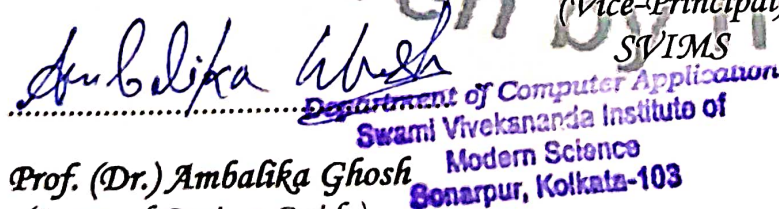 (Vice-Principal)
SVIMS
Ambalika Ghosh
Department of Computer Application
Swami Vivekananda Institute of
Modern Science
Sonarpur, Kolkata-103
Prof. (Dr.) Ambalika Ghosh